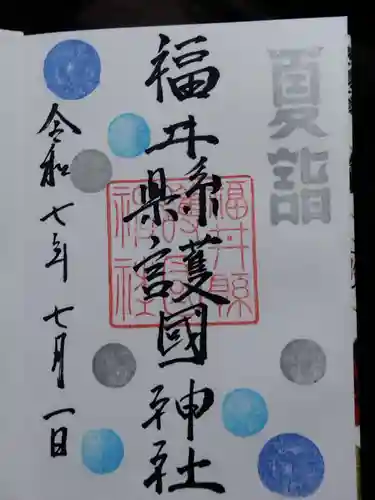 夏詣
福井縣護國神社
福井縣
護國
神社
県宮
令和七年七月一日